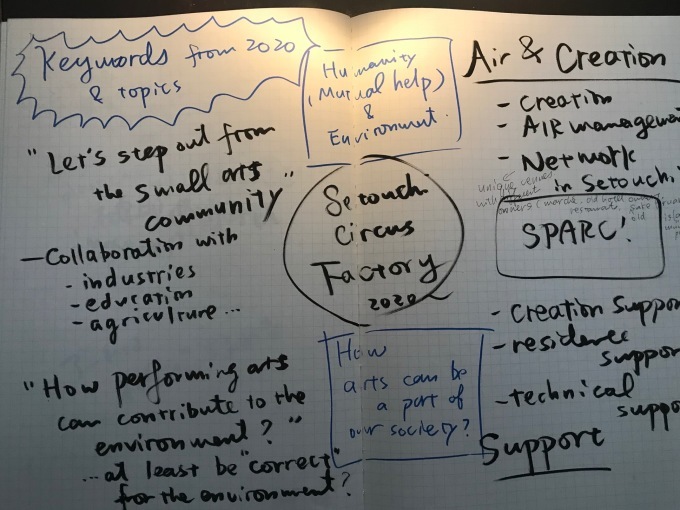 Keywords from 2020
& topics
"Let's step out from
the small arts
community"
— Collaboration with
- industries
- education
- agriculture...
"How performing arts
can contribute to the
environment?"
...at least be "correct"
for the environment?
Humanity
(Mutual help)
&
Environment.
Setouchi
Circus
Factory
2020
How
arts can be
a part of
our society?
Air & Creation
- Creation
- AIR management
- Network
in Setouchi
unique venues
with
owners
SPARC!
- Creation Support
- residence
support
- technical
support
Support